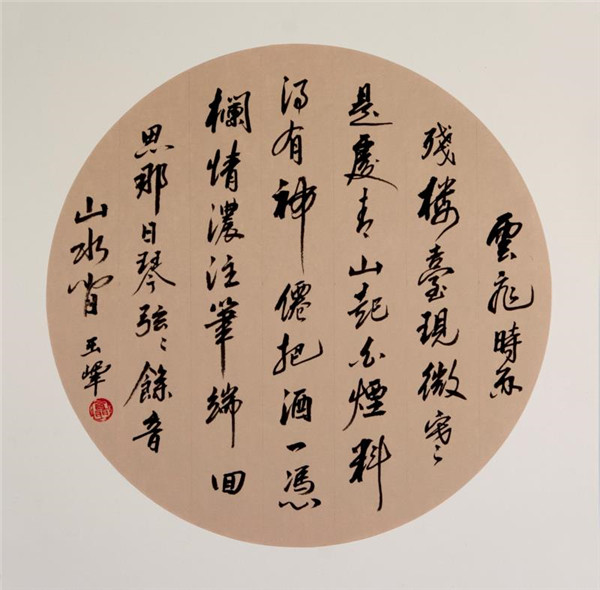 雲飛時雨
殘樓臺現微寒々
是處青山起白煙料
得有神僊把酒一憑
欄情濃注筆端回
思那日琴弦々餘音
山水間 玉嶧